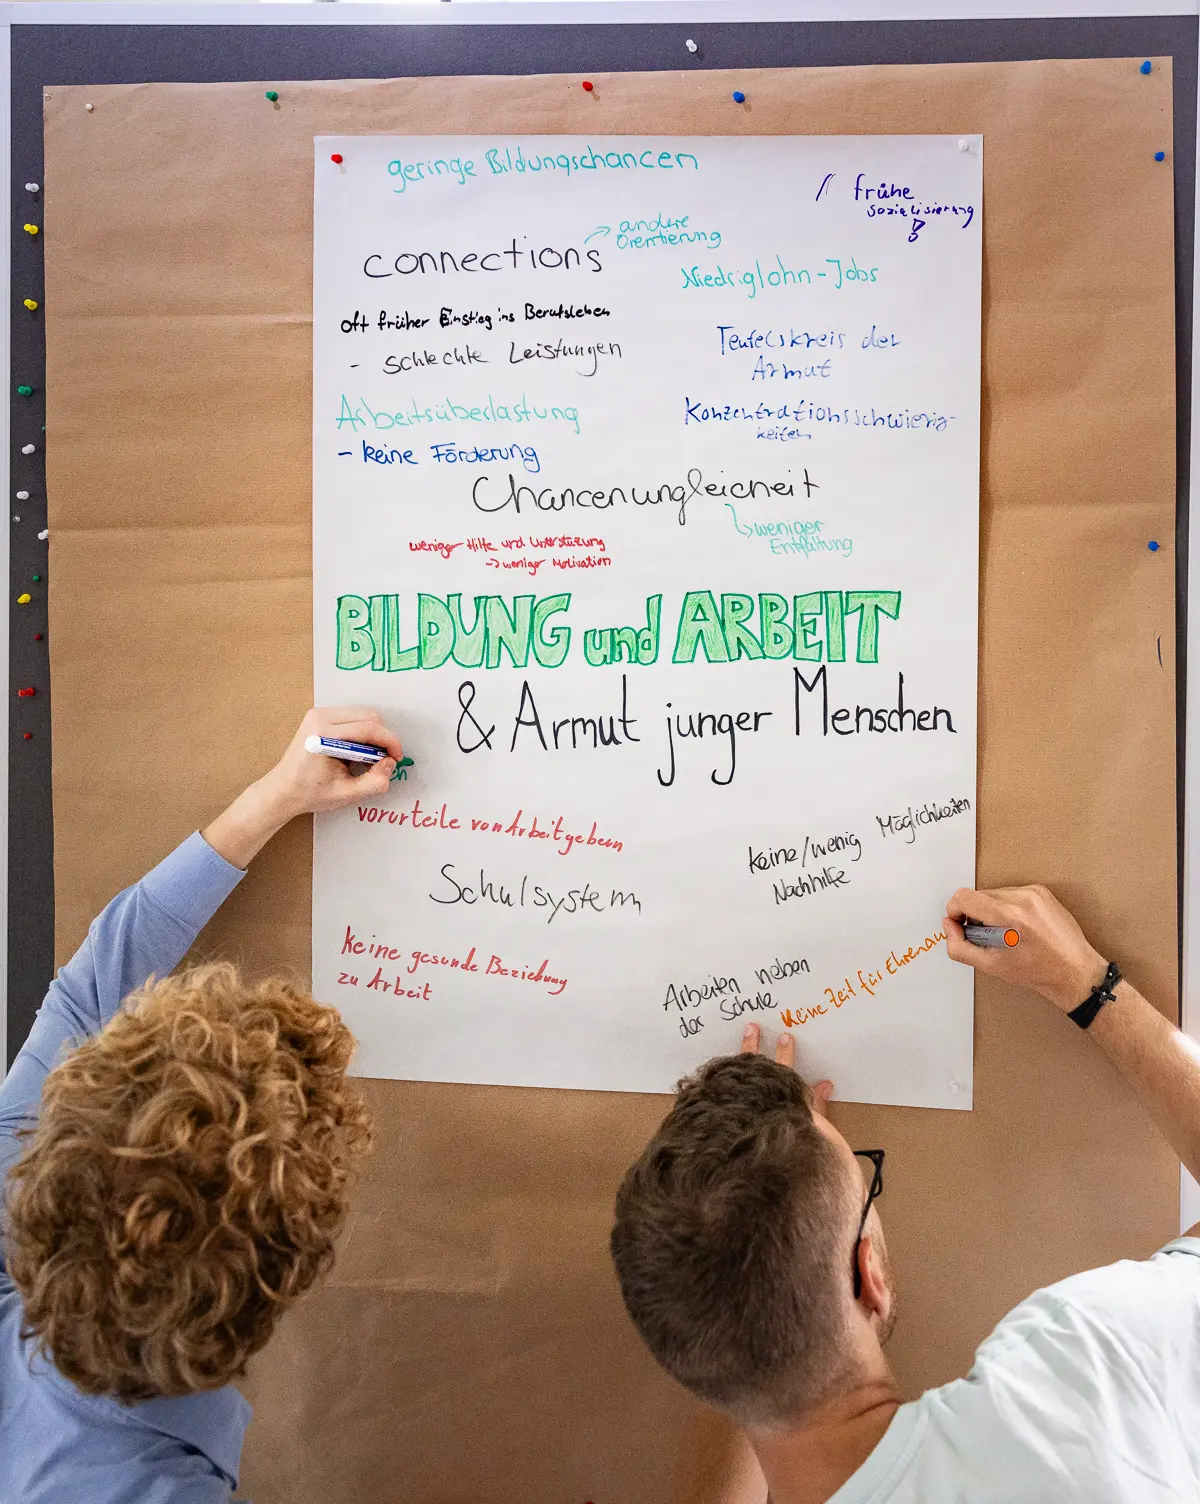 geringe Bildungschancen
frühe
sozialisierung
andere
Orientierung
connections
Niedriglohn-Jobs
oft früher Einstieg ins Berufsleben
- schlechte Leistungen
Teufelskreis der
Armut
Arbeitsüberlastung
Konzentrationsschwierig-
keiten
- keine Förderung
Chancenungleicheit
weniger
Entfaltung
weniger Hilfe und Unterstüzung
-> weniger Motivation
BILDUNG und ARBEIT
& Armut junger Menschen
vorurteile von Arbeitgebern
Keine/wenig Möglichkeiten
Nachhilfe
Schulsystem
Keine gesunde Beziehung
zu Arbeit
Arbeiten neben
der Schule
Keine Zeit für Ehrenam